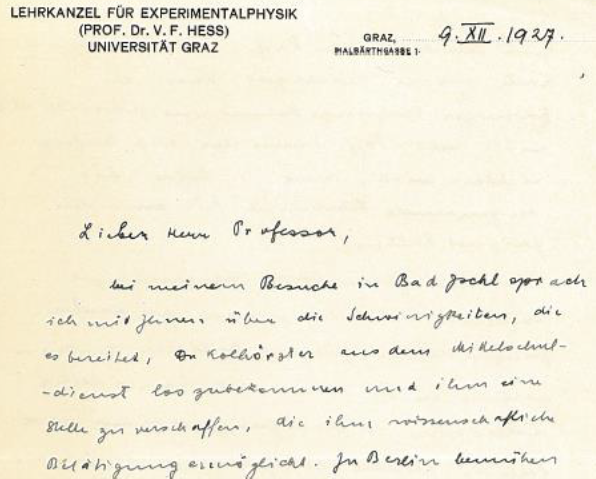 LEHRKANZEL FÜR EXPERIMENTALPHYSIK
(PROF. Dr. V. F. HESS)
UNIVERSITÄT GRAZ
GRAZ, 9. XII. 1927.
HALBÄRTHGASSE 1.
Lieber Herr Professor,
bei meinem Besuche in Bad Ischl sprach
ich mit Ihnen über die Schwierigkeiten, die
es bereitet, Dr Kolhörster aus dem Mittelschul-
-dienst loszubekommen und ihm eine
Stelle zu verschaffen, die ihm wissenschaftliche
Betätigung ermöglicht. In Berlin bemühen